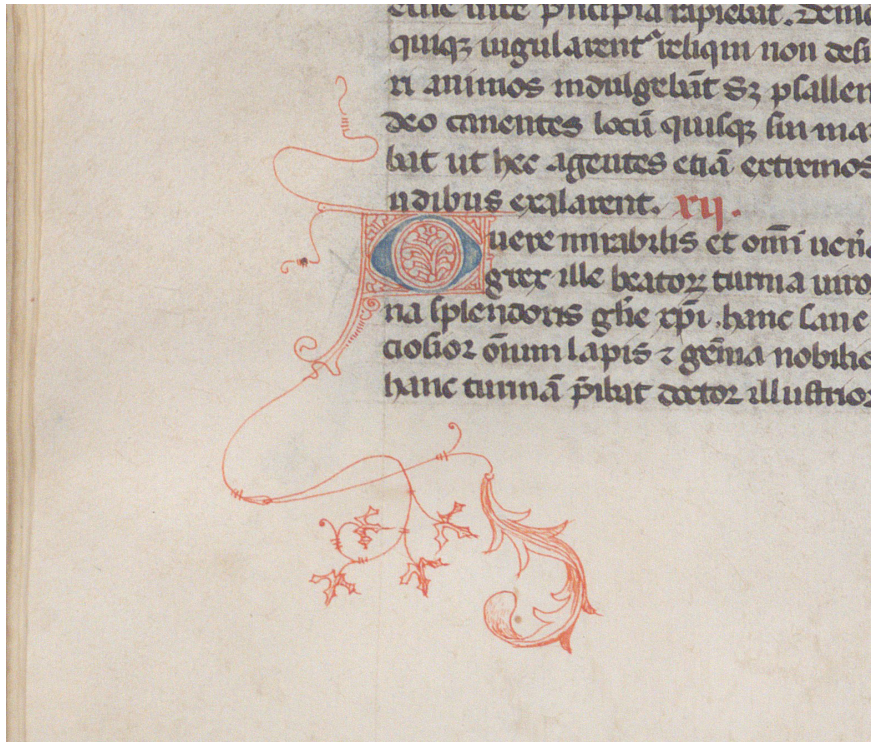 eiue uite p̃ncipia rapiebat. Demu
quiq̃ iugularent᷑ reliqui non desi
ri animos indulgebãt Sꝫ psallen
deo canentes locũ quisqꝫ sin mar
bat ut hec agentes etiã extremos
udibus exalarent. xij.
O uere mirabilis et om̃i uen̾a
grex ille beatoꝝ turma uiro
na splendoris gl̃ie xp̃i. hanc sane
ciosior om̃ium lapis ⁊ gem̃a nobilio
hanc turmã p̃ibat doctor illustrior